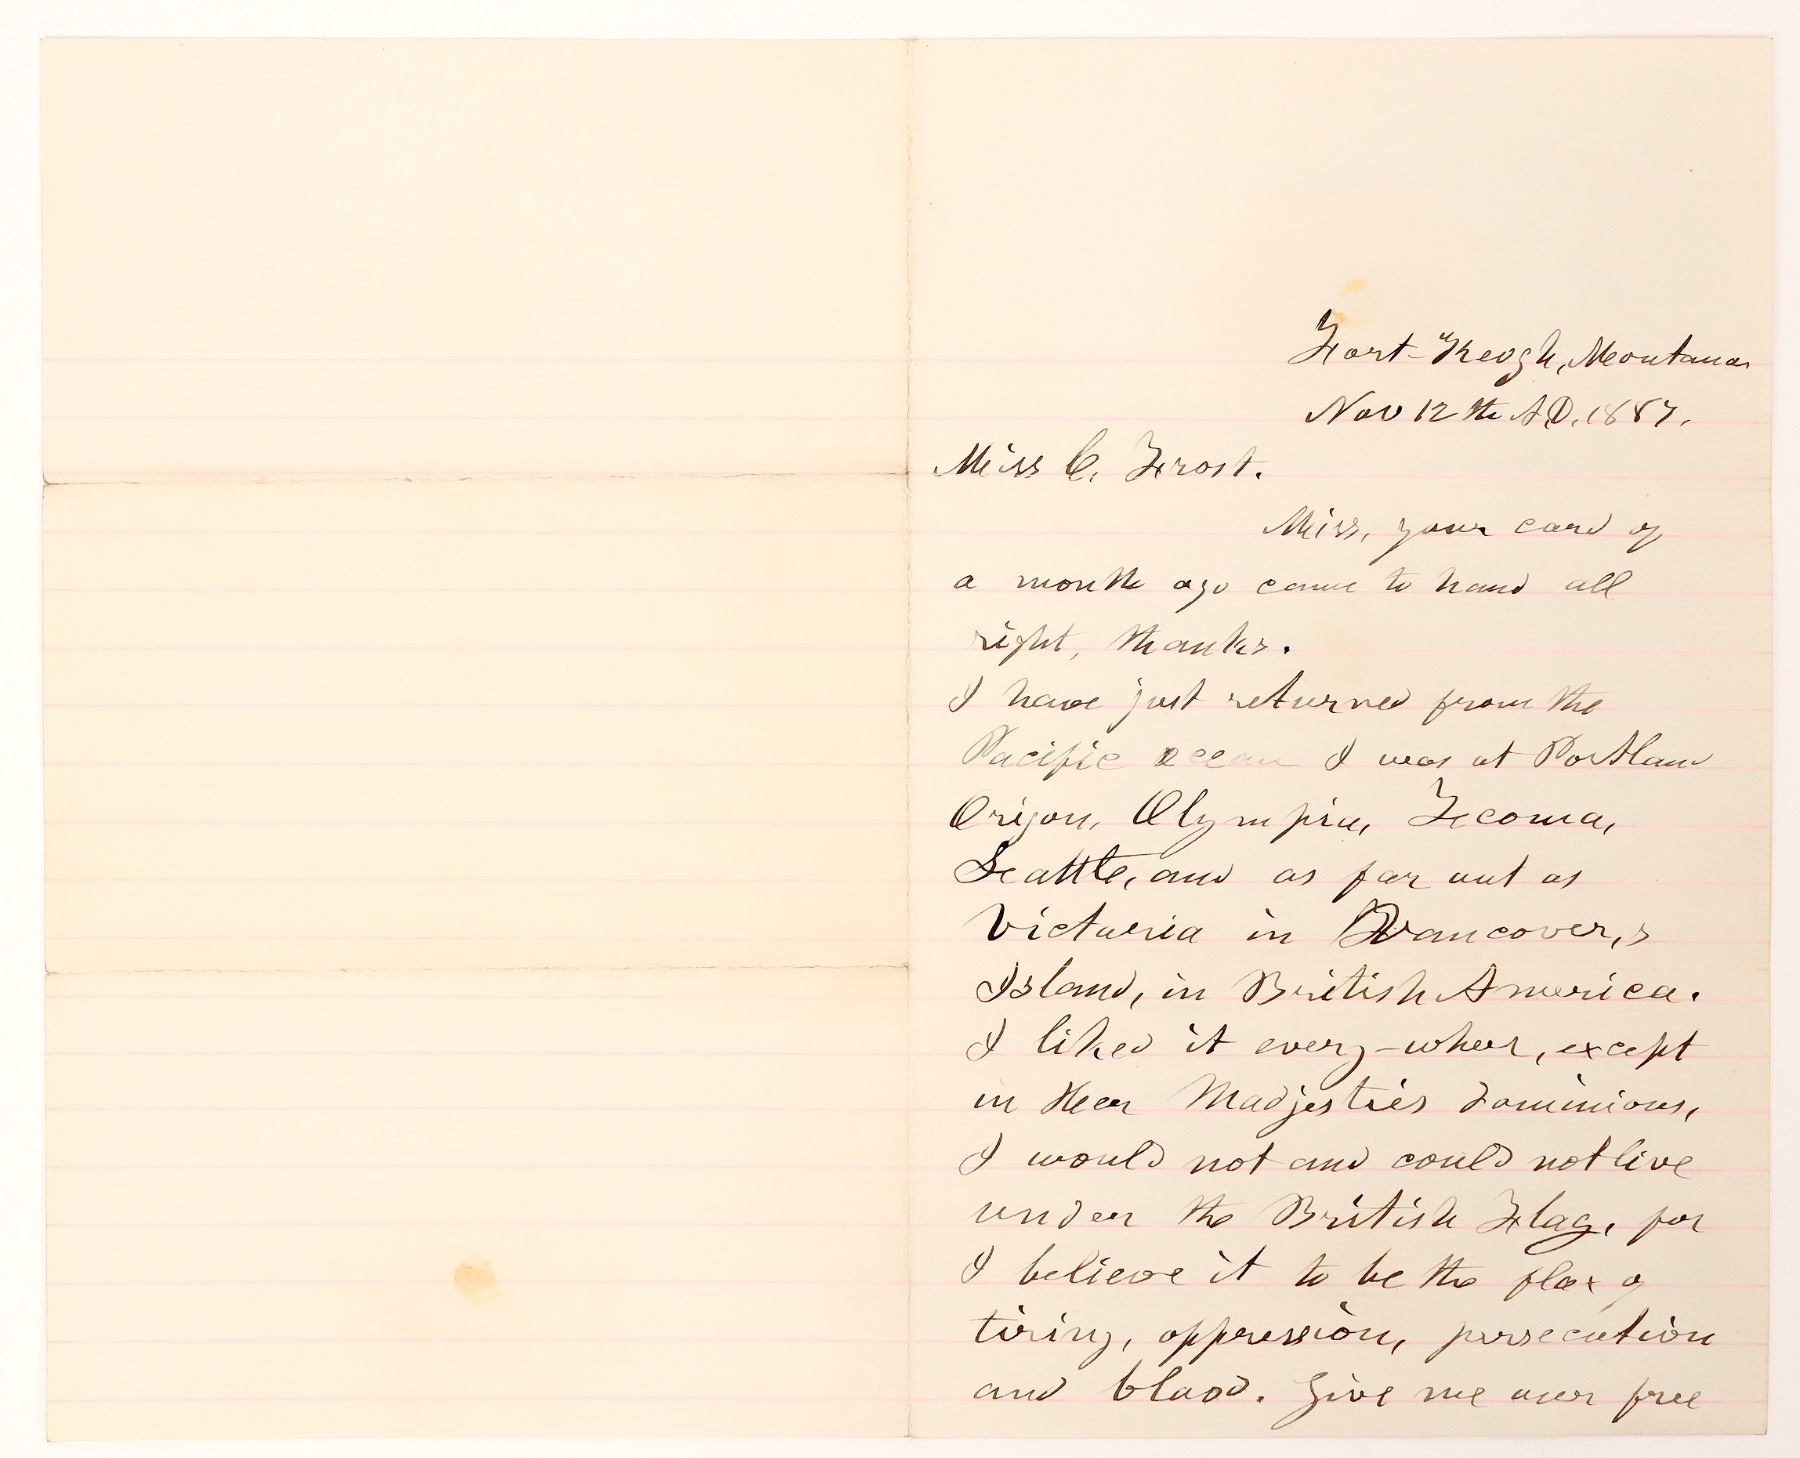 Fort-Keogh, Montana
Nov 12th A.D. 1887.
Miss C. Frost.
Miss, your card of
a month ago came to hand all
right, thanks.
I have just returned from the
Pacific ocean I was at Portland
Origon, Olympia, Tecoma,
Seattle, and as far out as
Victoria in Vancover,s
Island, in British America.
I liked it every-wheer, except
in Heer Madjesties dominions,
I would not and could not live
under the British Flag, for
I believe it to be the flax of
tiriny, oppression, persecution
and blaod. Give me ower free